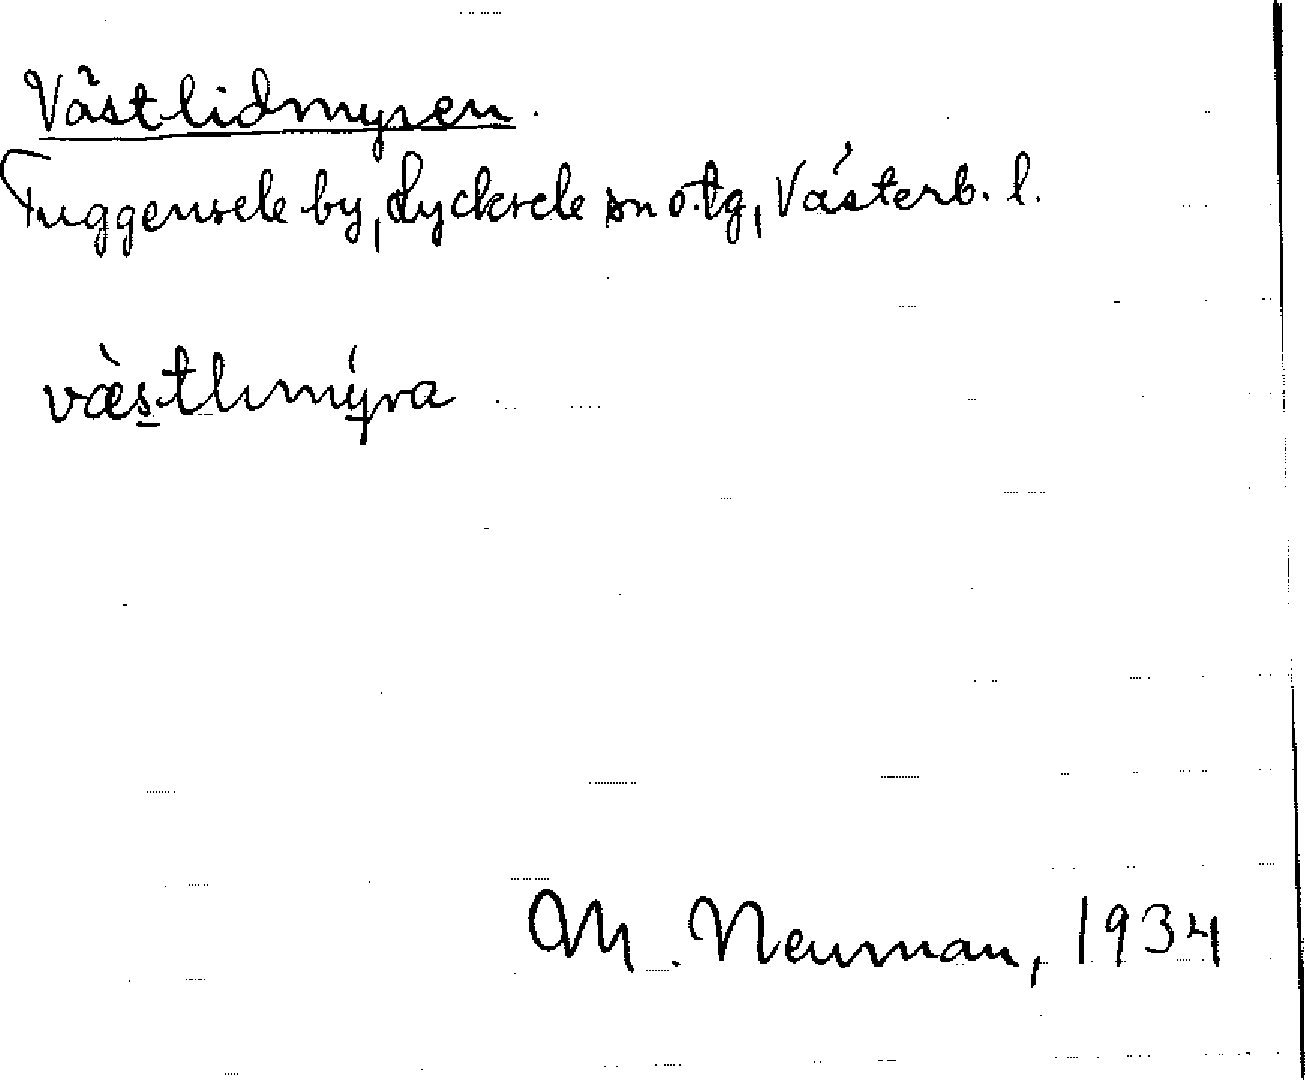 Västlidmyren.
Tuggensele by, Lycksele sn o. tg, Västerb. l.
væ̀stlımýra
M. Neuman, 1934